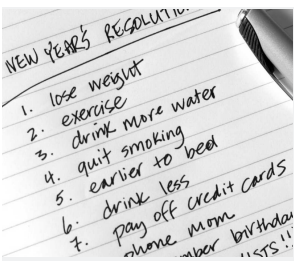 NEW YEAR'S RESOLUTIO
1. lose weight
2. exercise
3. drink more water
4. quit smoking
5. earlier to bed
6. drink less
7. pay off credit cards
phone mom
mber birthday
STS!!